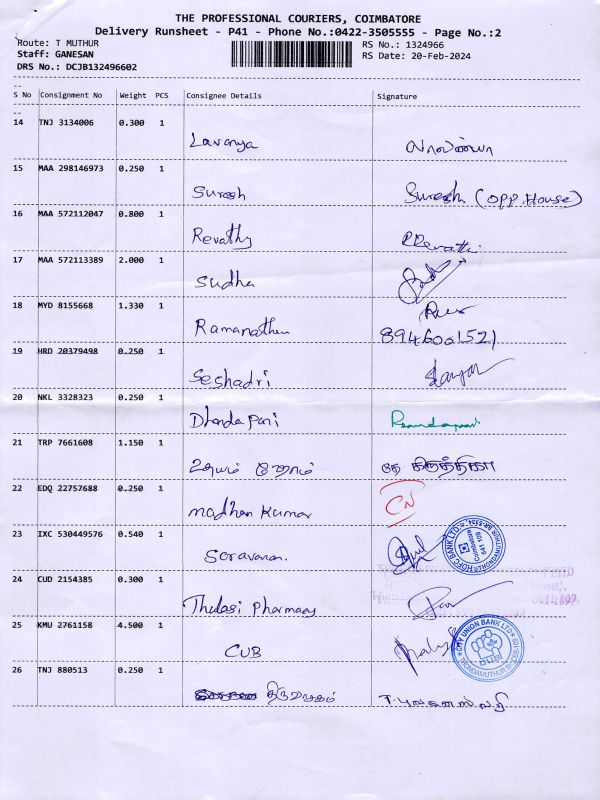 THE PROFESSIONAL COURIERS, COIMBATORE
Delivery Runsheet - P41 - Phone No.:0422-3505555 - Page No.:2
Route: T MUTHUR RS No.: 1324966
Staff: GANESAN RS Date: 20-Feb-2024
DRS No.: DCJB132496602
S No Consignment No Weight PCS Consignee Details Signature
14 TNJ 3134006 0.300 1
Lavanya லாவண்யா
15 MAA 298146973 0.250 1
Suresh Suresh (opp.House)
16 MAA 572112047 0.800 1
Revathy
17 MAA 572113389 2.000 1
Sudha
18 MYD 8155668 1.330 1
Ramanathan 8946001521
19 HRD 20379498 0.250 1
Seshadri
20 NKL 3328323 0.250 1
Dhandapani
21 TRP 7661608 1.150 1
22 EDQ 22757688 0.250 1
Madhan Kumar CN
23 IXC 530449576 0.540 1
Saravanan.
HDFC BANK LTD.
Coimbatore
641 109
24 CUD 2154385 0.300 1
Thulasi Pharmacy
25 KMU 2761158 4.500 1
CUB
CITY UNION BANK LTD
CUB
26 TNJ 880513 0.250 1